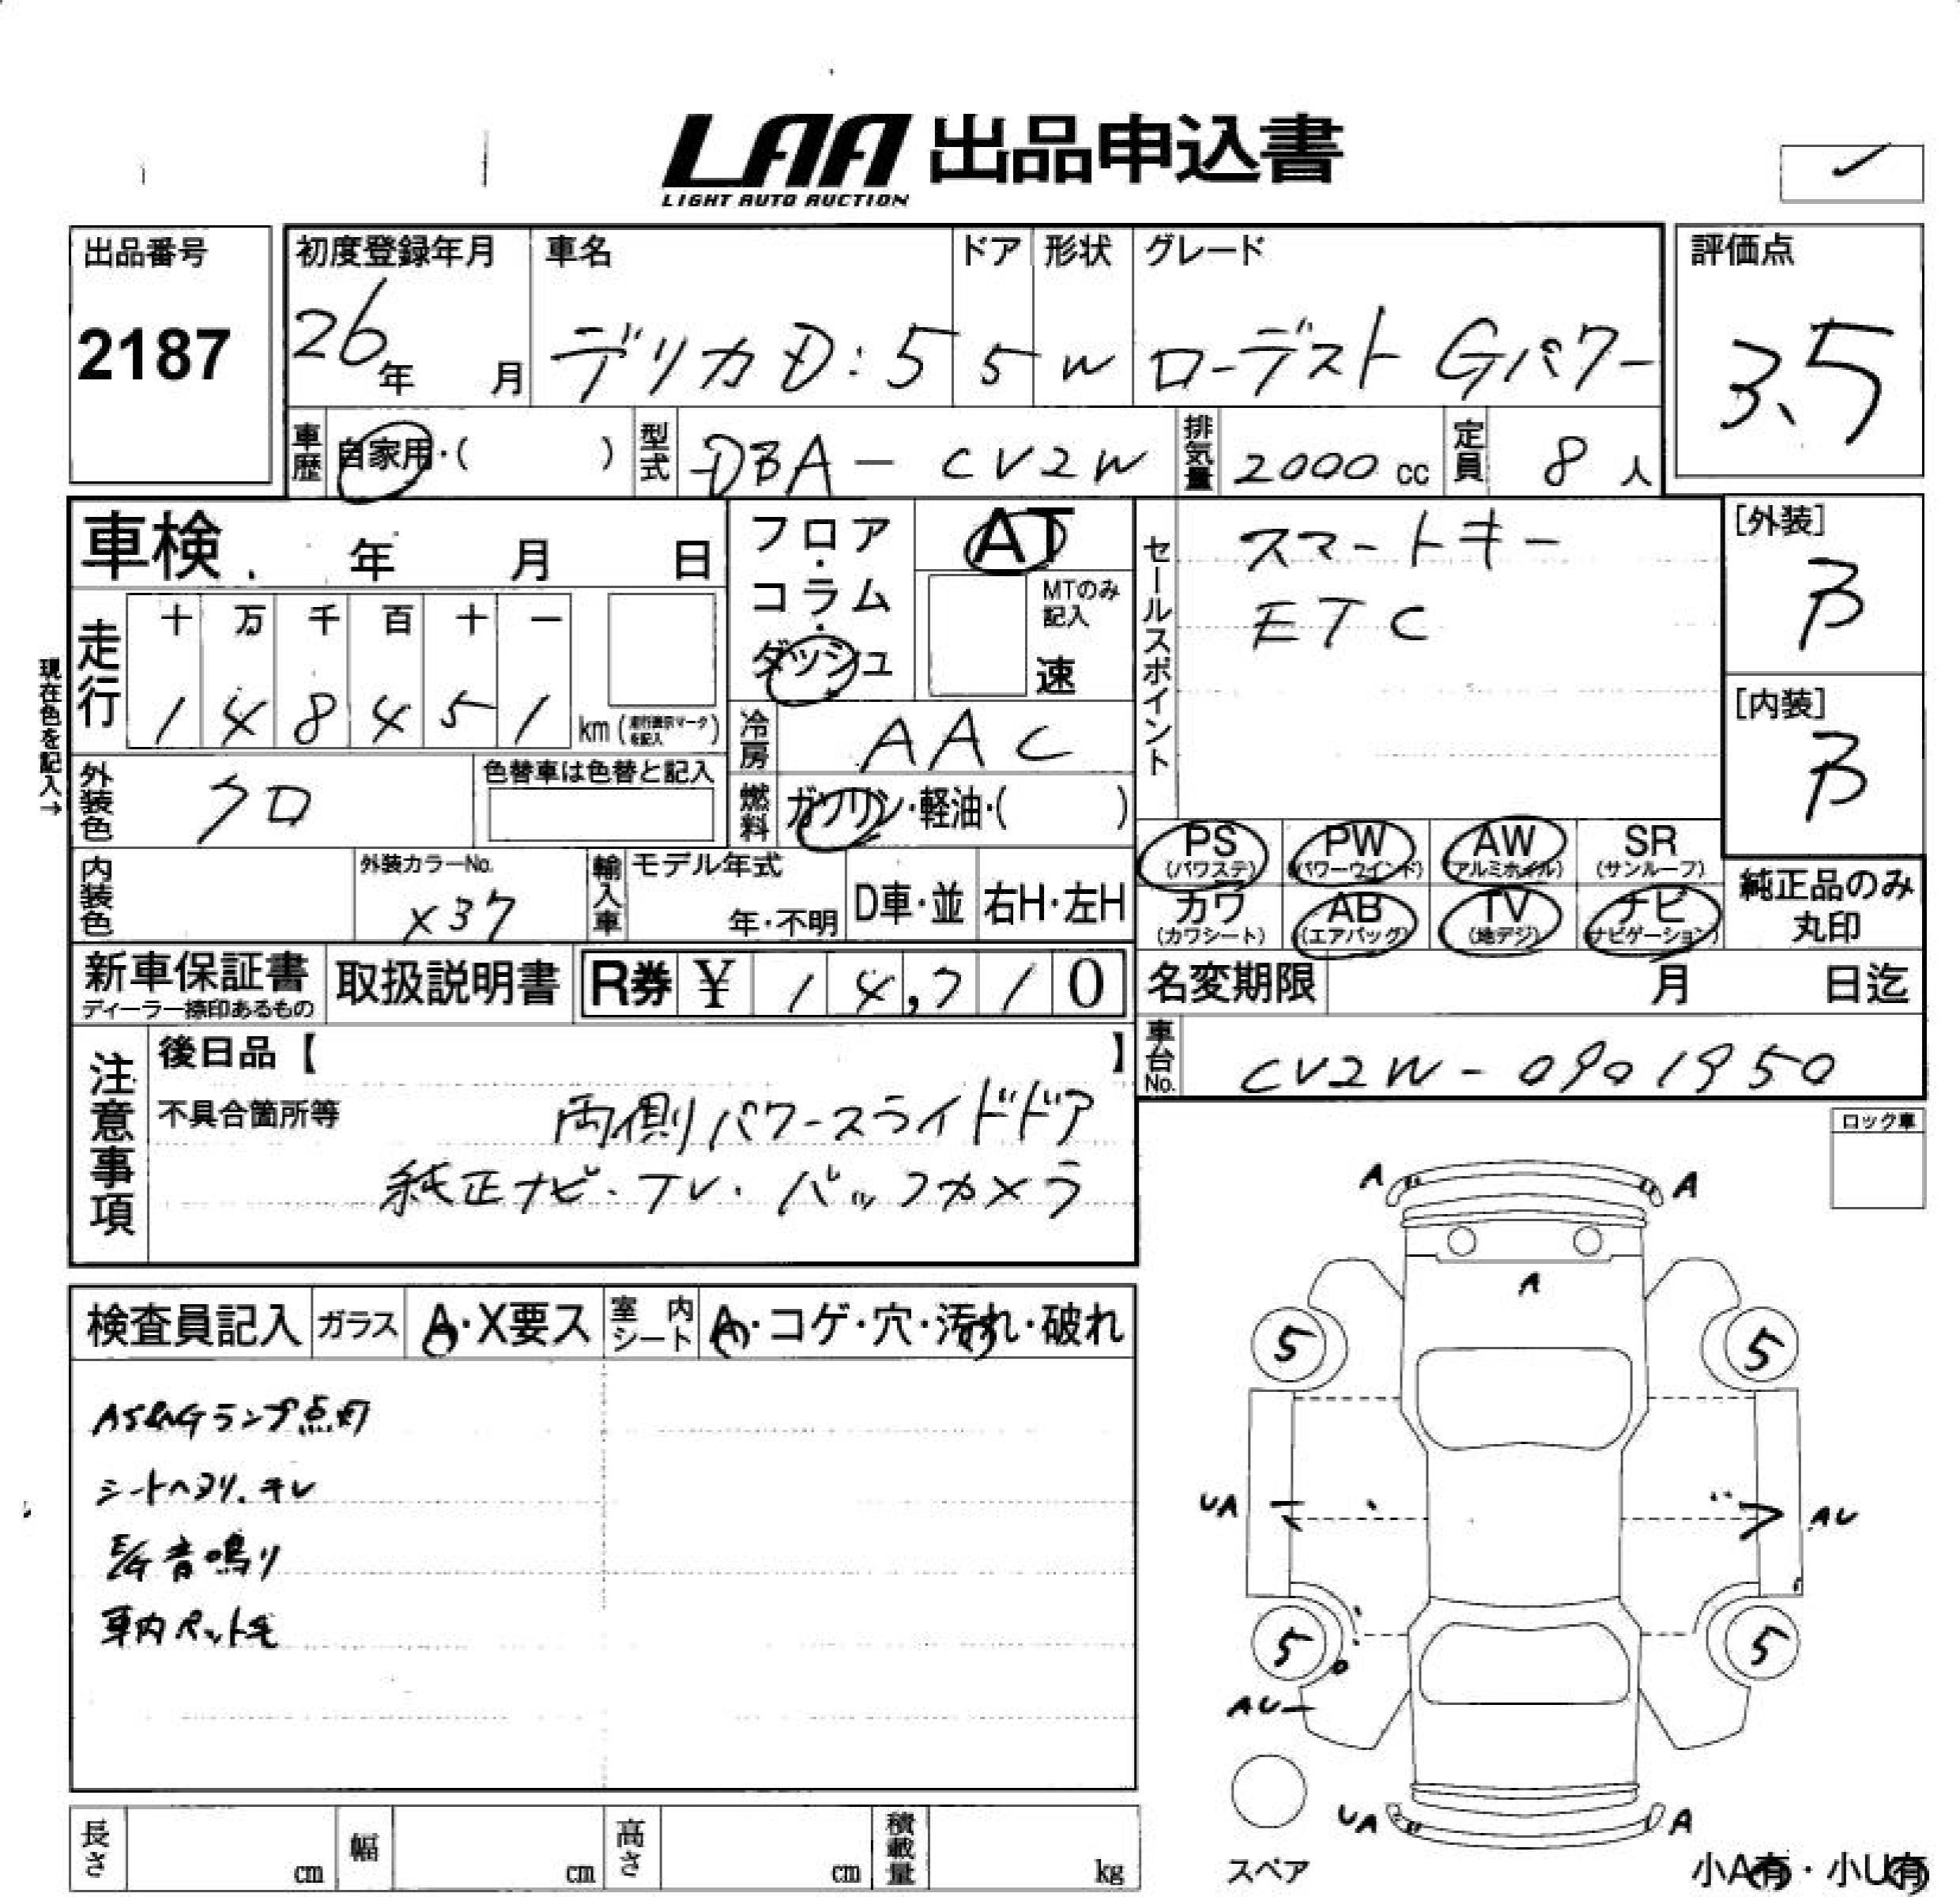 LAA 出品申込書
LIGHT AUTO AUCTION
出品番号
2187
初度登録年月
26年 月
車名
デリカD:5
ドア
5
形状
W
グレード
ローデスト Gパワー
評価点
3.5
車歴 自家用・( )
型式 DBA-CV2W
排気量 2000 cc
定員 8 人
車検 年 月 日
フロア・コラム・ダッシュ
AT
MTのみ記入
速
セールスポイント
スマートキー
ETC
[外装]
B
[内装]
B
現在色を記入→
走行
十 万 千 百 十 一
1 4 8 4 5 1 km (走行表示マークを記入)
冷房 AAC
外装色 クロ
色替車は色替と記入
燃料 ガソリン・軽油・( )
PS (パワステ)
PW (パワーウインド)
AW (アルミホイル)
SR (サンルーフ)
カワ (カワシート)
AB (エアバッグ)
TV (地デジ)
ナビ (ナビゲーション)
純正品のみ丸印
内装色
外装カラーNo.
X37
輸入車
モデル年式
年・不明
D車・並
右H・左H
新車保証書
ディーラー捺印あるもの
取扱説明書
R券 ¥ 14,710
名変期限 月 日迄
車台No. CV2W-0901950
注意事項
後日品【 】
不具合箇所等
両側パワースライドドア
純正ナビ・TV・バックカメラ
ロック車
検査員記入
ガラス A・X要ス
室内シート A・コゲ・穴・汚れ・破れ
ランプ点灯
シートヘタリ、キレ
E/G音鳴り
車内ペット毛
A A
A
5 5
UA AU
5 5
AU
UA A
スペア
小A有・小U有
長さ cm
幅 cm
高さ cm
積載量 kg